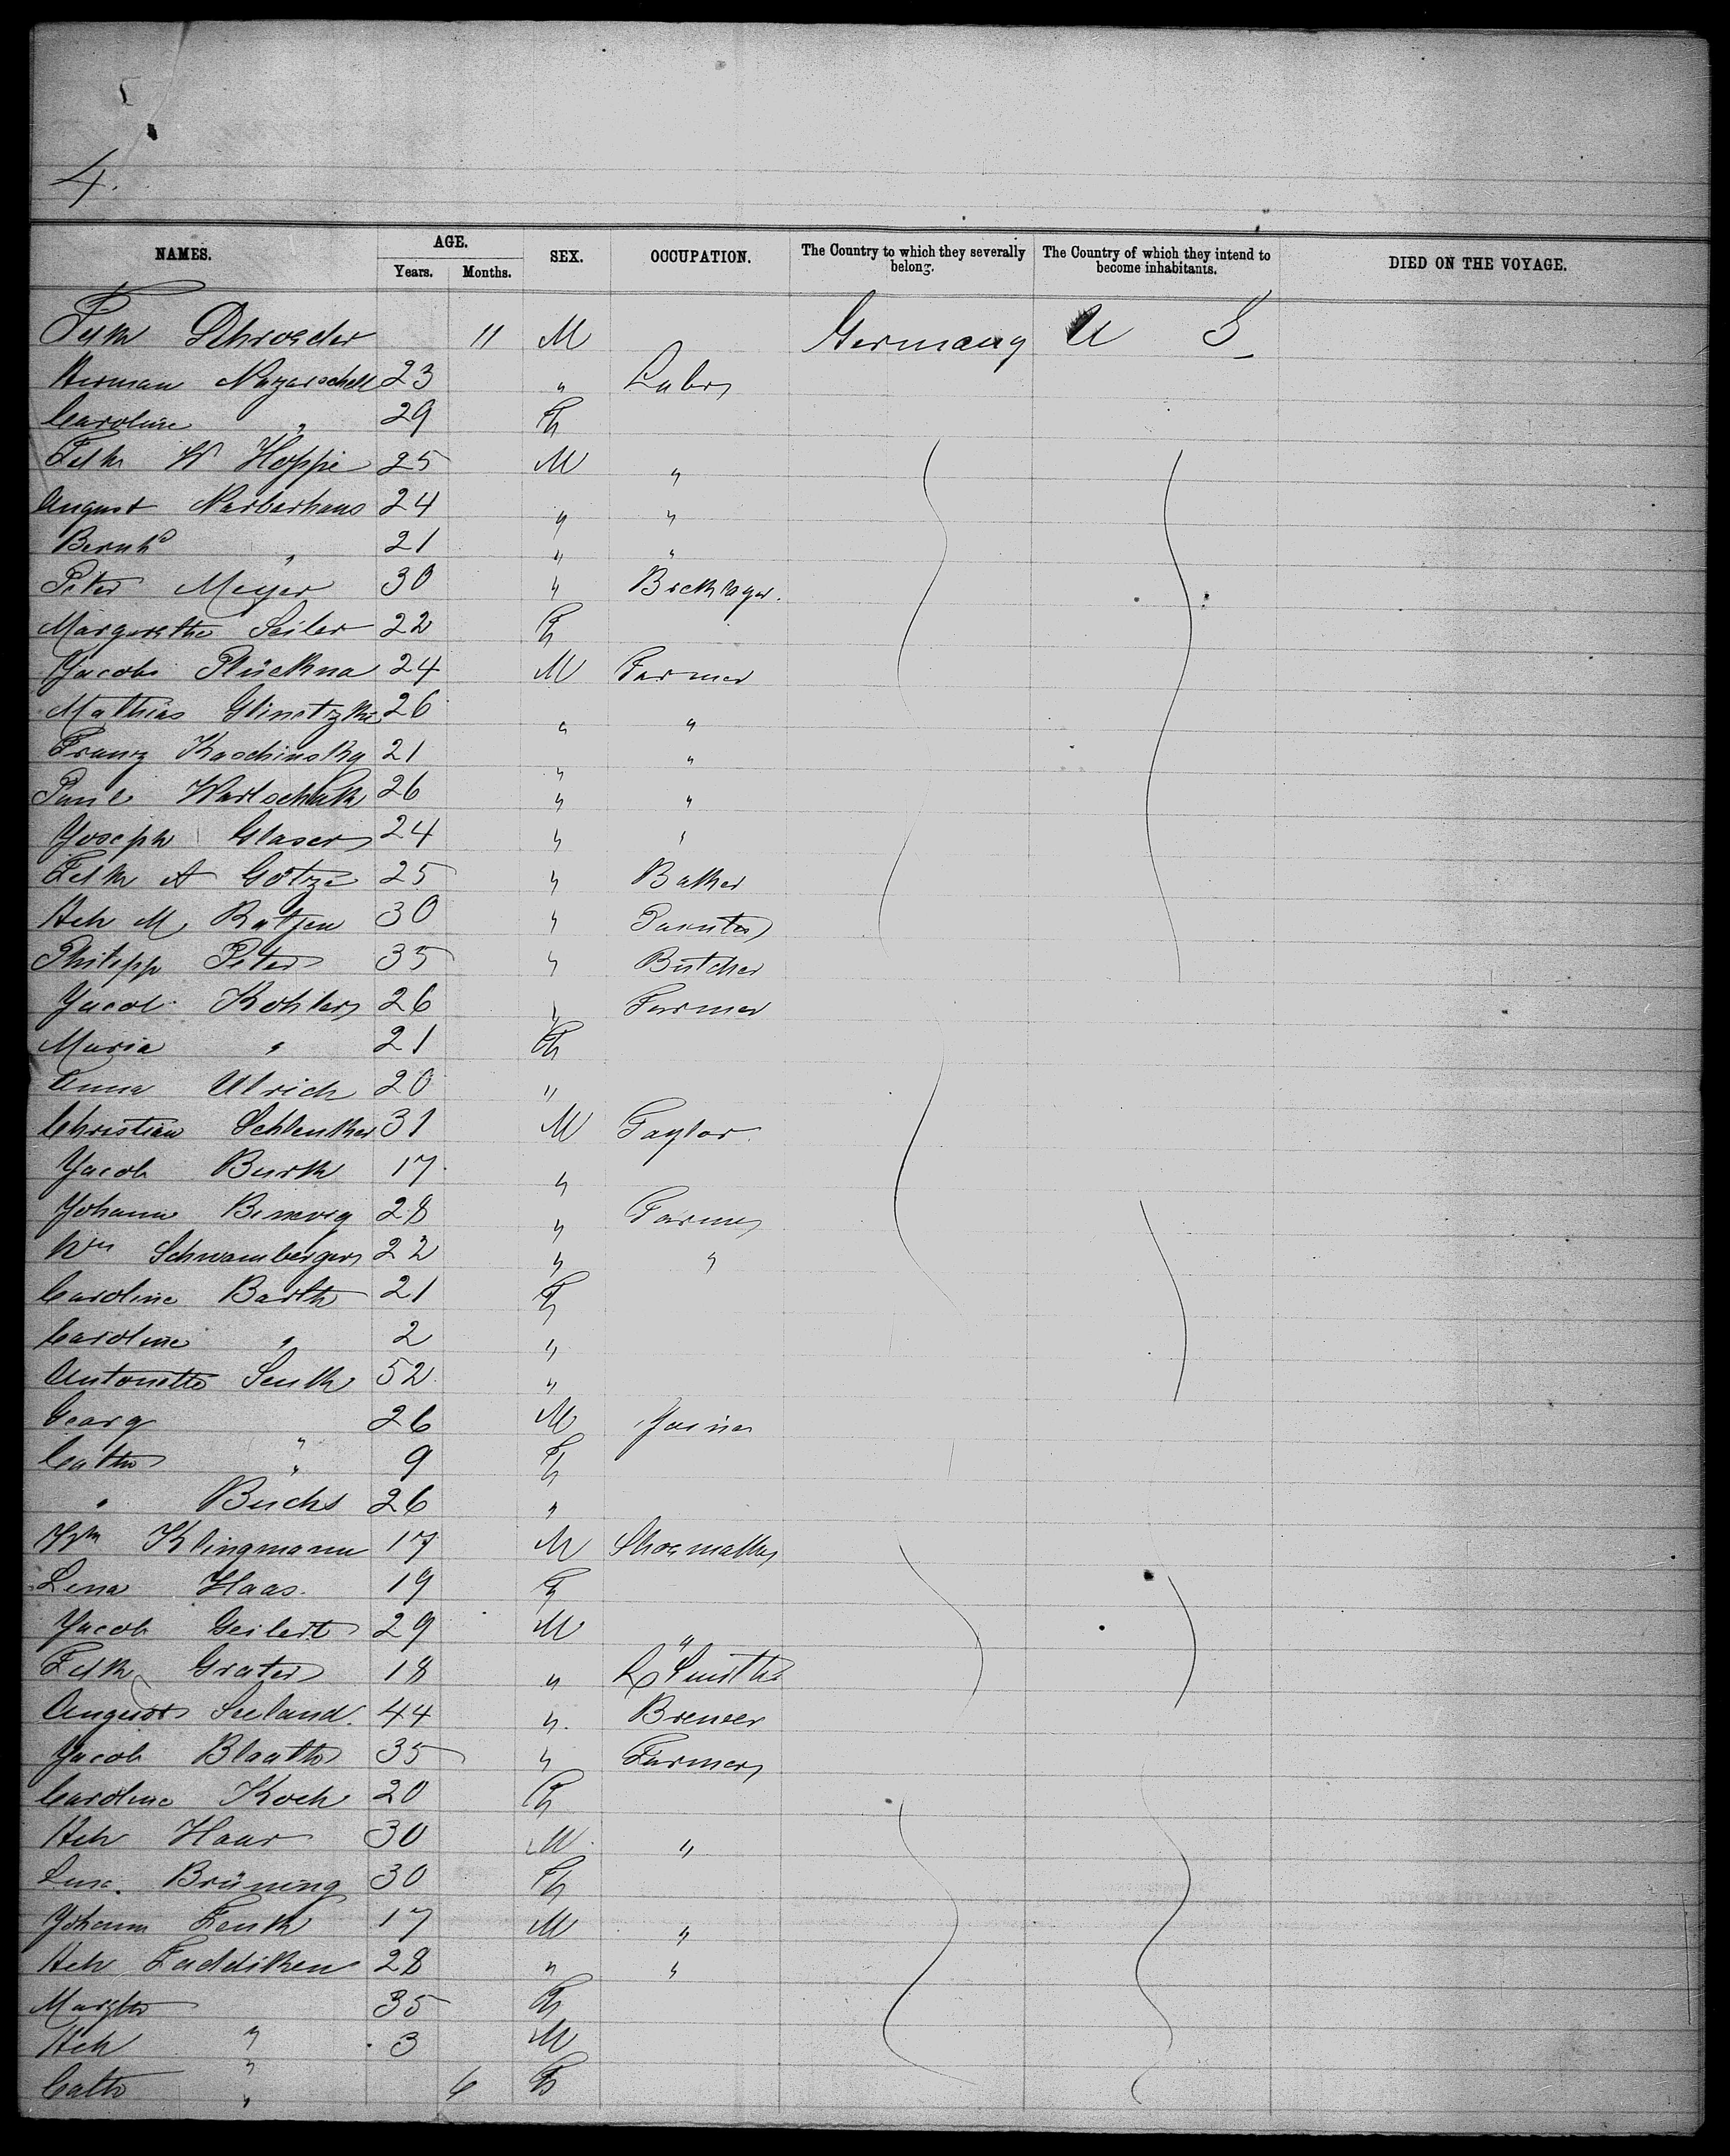 4.
NAMES. AGE. SEX. OCCUPATION. The Country to which they severally belong. The Country of which they intend to become inhabitants. DIED ON THE VOYAGE.
Years. Months.
Schroeder 11 M Germany U S
Herman 23 " Labr
Caroline " 29 F
Fdk W Hoppe 25 M "
August Narberhaus 24 " "
Bernhd " 21 " "
Peter Meyer 30 "
Margarethe Seiler 22 F
Jacob 24 M Farmer
Mathias Glinetzki 26 " "
Franz Kaschinsky 21 " "
Paul 26 " "
Joseph Glaser 24 " "
Fdk A Götze 25 " Baker
Hch M Ratjen 30 "
Philipp Peter 35 " Butcher
Jacob Kohler 26 " Farmer
Maria " 21 F
Anna Ulrich 20 "
Christian Schlenker 31 M Taylor
Jacob Burk 17 "
Johann 28 " Farmer
Wm Schwamberger 22 " "
Caroline Barth 21 F
Caroline " 2 "
Antonette Senk 52 "
Georg " 26 M Joiner
Cath " 9 F
" Buchs 26 "
Klingmann 17 M Shoemaker
Lena Haas 19 F
Jacob Geilert 29 M "
Fdk Grater 18 " Smith
August Seeland. 44 " Brewer
Jacob 35 " Farmer
Caroline Koch 20 F
Hch Haar 30 M "
Brüning 30 F
Johann Fenk 17 M "
Hch Faddiken 28 " "
Margth " 35 F
Hch " 3 M
Cath " 6 F